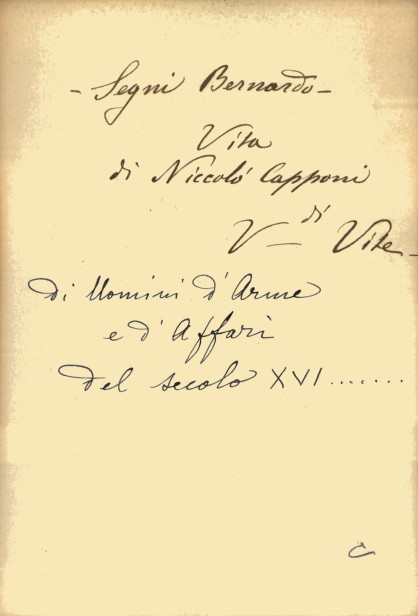 - Segni Bernardo -
Vita
di Niccoló Capponi
V— di Vite -
di Uomini d'Arme
e d'Affari
del secolo XVI .......